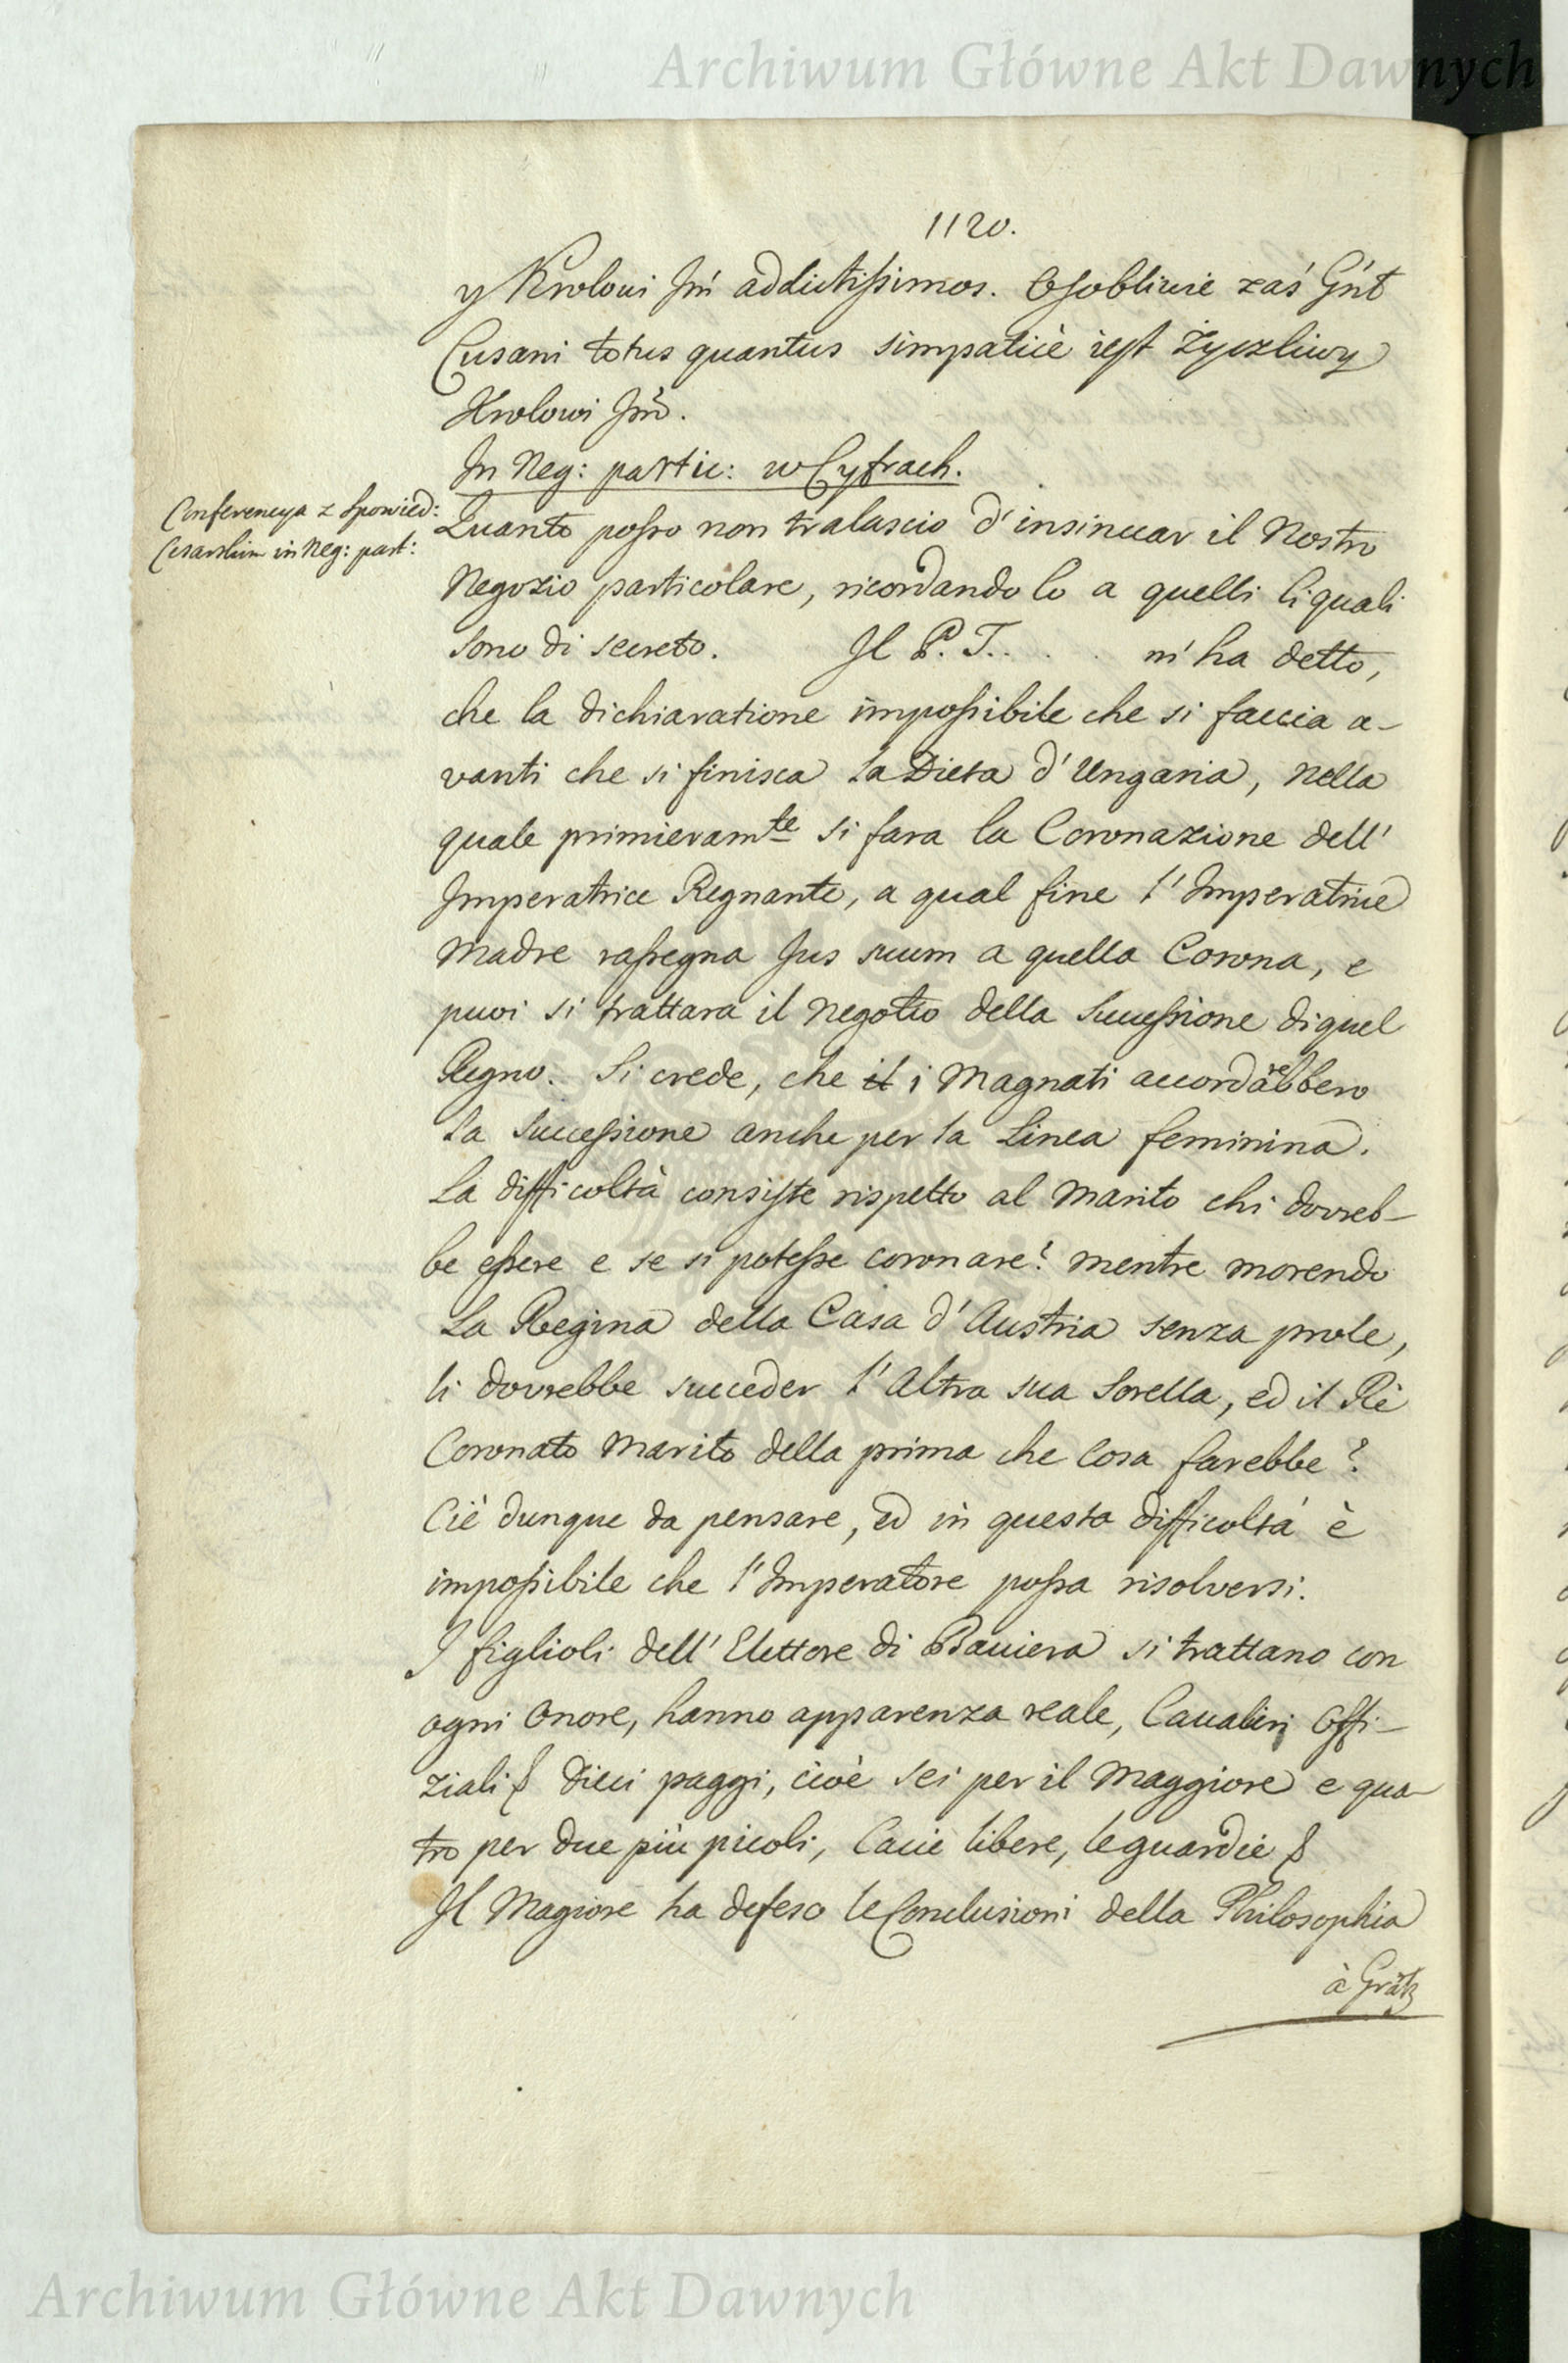 Archiwum Główne Akt Dawnych
1120.
y Krolowi Jm̃ addictissimos. Osobliwie zaś Gńł
Cusani totus quantus simpaticè iest Życzliwy
Krolowi Jm̃.
In Neg: partic: w Cyfrach.
Conferencya z Spowied:
Cesarskim in Neg: part:
Quanto posso non tralascio d'insinuar il Nostro
Negozio particolare, ricordandolo a quelli li quali
sono di secreto. Il P. T. . . . m'ha detto,
che la dichiaratione impossibile che si faccia a-
vanti che si finisca la Dieta d'Ungaria, nella
quale primieramte si fara la Coronazione dell'
Imperatrice Regnante, a qual fine l'Imperatrice
Madre rassegna Jus suum a quella Corona, e
puoi si trattara il negotio della Successione di quel
Regno. Si crede, che il i Magnati accordarebbero
la Successione anche per la Linea feminina.
La difficoltà consiste rispetto al Marito chi dovreb-
be essere e se si potesse coronare? mentre morendo
La Regina della Casa d'Austria senza prole,
li dovrebbe succeder l'Altra sua Sorella, ed il Rè
Coronato Marito della prima che Cosa farebbe?
Ciè dunque da pensare, ed in questa difficoltá è
impossibile che l'Imperatore possa risolversi.
I figlioli dell'Elettore di Baviera si trattano con
ogni Onore, hanno apparenza reale, Cavalieri Offi-
ziali & dieci paggi, cioè sei per il Maggiore e qua-
tro per due più picoli, Cacie libere, le guardie &
Il Magiore ha defeso le Conclusioni della Philosophia
à Grätz
Archiwum Główne Akt Dawnych